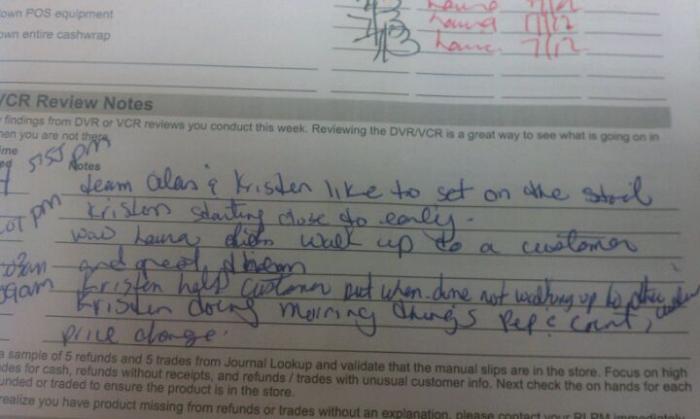 own POS equipment
7/3 Laura 7/12
own entire cashwrap
7/13 Laura 7/12
VCR Review Notes
findings from DVR or VCR reviews you conduct this week. Reviewing the DVR/VCR is a great way to see what is going on in
hen you are not there.
ime
5:55 pm
Notes
team Alan & Kristen like to set on the stool
pm Kristen starting close to early.
was Laura didn walk up to a customer
and greet them
am Kristen help customer but when done not walking up to other
Kristen doing morning things Rep & count,
price change.
a sample of 5 refunds and 5 trades from Journal Lookup and validate that the manual slips are in the store. Focus on high
ades for cash, refunds without receipts, and refunds / trades with unusual customer info. Next check the on hands for each
unded or traded to ensure the product is in the store.
realize you have product missing from refunds or trades without an explanation, please contact your RLPM immediately